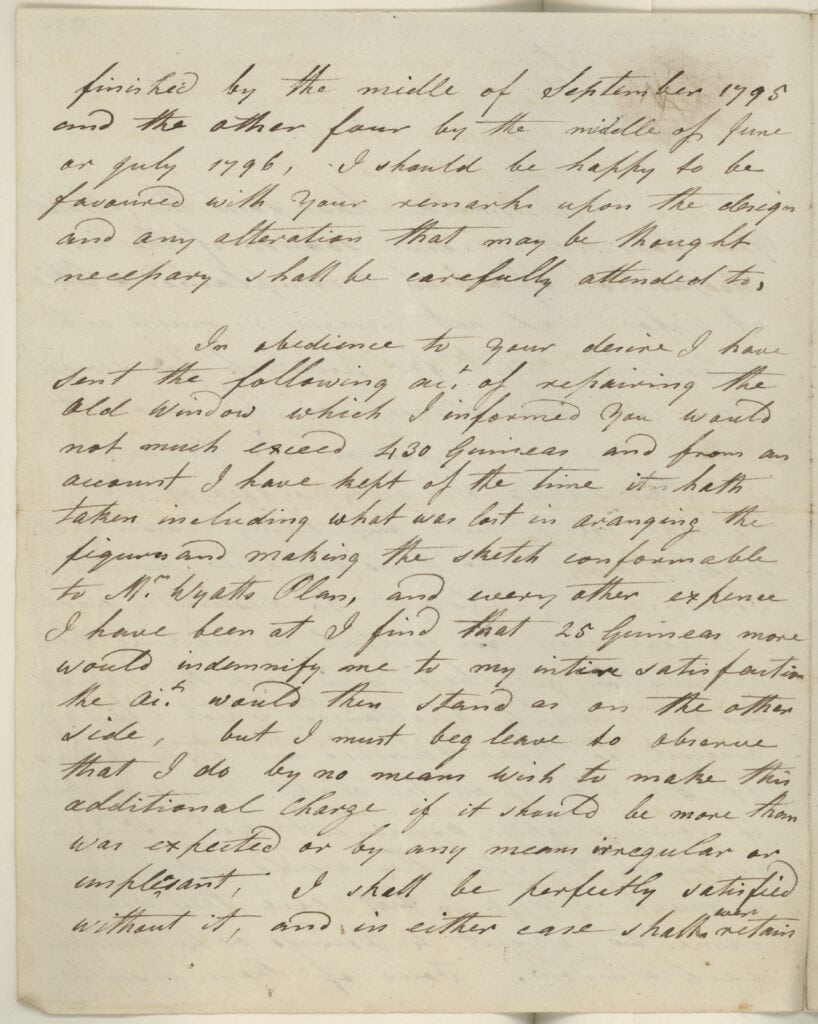 finished by the midle of September 1795
and the other four by the middle of June
or July 1796, I should be happy to be
favoured with your remarks upon the design
and any alteration that may be thought
necessary shall be carefully attended to,
In obedience to your desire I have
sent the following acct. of repairing the
old window which I informed you would
not much exceed 430 Guineas and from an
account I have kept of the time it hath
taken including what was lost in aranging the
figures and making the sketch conformable
to Mr. Wyatts Plan, and every other expence
I have been at I find that 25 Guineas more
would indemnify me to my intire satisfaction
the acct. would then stand as on the other
side, but I must beg leave to observe
that I do by no means wish to make this
additional Charge if it should be more than
was expected or by any means irregular or
unplesant, I shall be perfectly satisfied
without it, and in either case shall ever retain